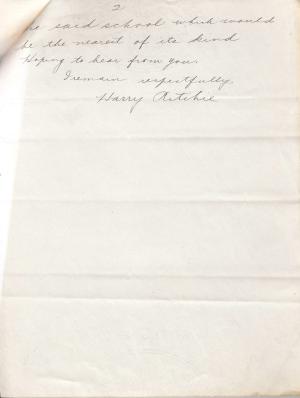 2
said school which would
be the nearest of its kind
Hoping to hear from you.
I remain respectfully
Harry Ritchie